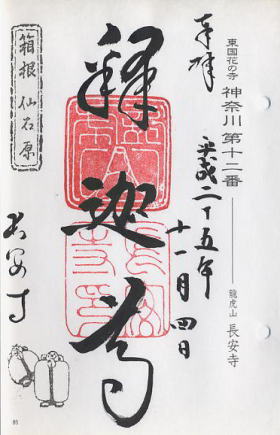 東国花の寺 神奈川 第十二番 龍虎山 長安寺
奉拝
平成二十五年
十一月四日
釋迦尊
箱根 仙石原
長安寺